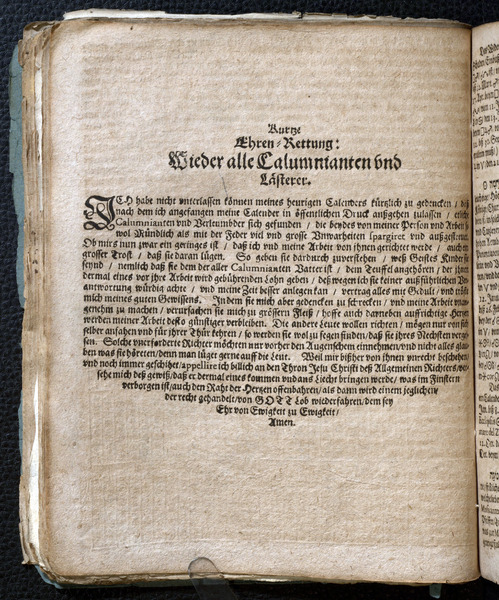 Kurtze
Ehren-Rettung:
Wieder alle Calumnianten vnd
Lästerer.
ICH habe nicht vnterlassen können meines heurigen Calenders kürtzlich zu gedencken / daß
nach dem ich angefangen meine Calender in öffentlichen Druck außgehen zulassen / etliche
Calumnianten vnd Verleumbder sich gefunden / die beydes von meiner Person vnd Arbeit so
wol Mündlich als mit der Feder viel vnd grosse Vnwarheiten spargirt vnd außgestrewet.
Ob mirs nun zwar ein geringes ist / daß ich vnd meine Arbeit von ihnen gerichtet werde / auch ein
grosser Trost / daß sie daran lügen. So geben sie dardurch zuverstehen / weß Geistes Kinder sie
seynd / nemlich daß sie dem der aller Calumnianten Vatter ist / dem Teuffel angehören / der ihnen
dermal eines vor ihre Arbeit wird gebührenden Lohn geben / deß wegen ich sie keiner außführlichen Ver-
antwortung würdig achte / vnd meine Zeit besser anlegen kan / vertrag alles mit Gedult / vnd tröste
mich meines guten Gewissens. Indem sie mich aber gedencken zu schrecken / vnd meine Arbeit vnan-
genehm zu machen / verursachen sie mich zu grössern Fleiß / hoffe auch darneben auffrichtige Hertzen
werden meiner Arbeit desto günstiger verbleiben. Die andere Leute wollen richten / mögen nur von sich
selber anfahen vnd für ihrer Thür kehren / so werden sie wol zu fegen finden / daß sie ihres Nechsten verges-
sen. Solche vnerforderte Richter möchten nur vorher den Augenschein einnehmen / vnd nicht alles glau-
ben was sie höreten / denn man lüget gerne auff die Leut. Weil mir bißher von ihnen vnrecht beschehen /
vnd noch immer geschihet / appellire ich billich an den Thron Jesu Christi deß Allgemeinen Richters / ver-
sehe mich deß gewiß / daß er dermal eines kommen vnd ans Liecht bringen werde / was im Finstern
verborgen ist / auch den Raht der Hertzen offenbahren / als dann wird einem jeglichen /
der recht gehandelt / von GOTT Lob wiederfahren / dem sey
Ehr von Ewigkeit zu Ewigkeit /
Amen.